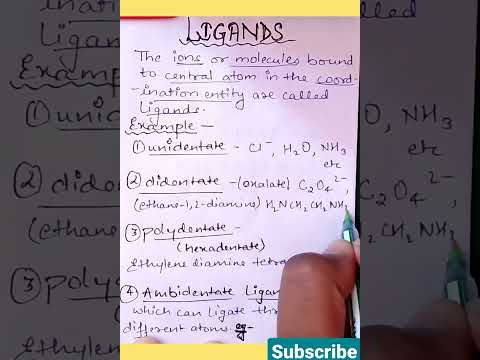 LIGANDS
The ions or molecules bound
to central atom in the coord-
-ination entity are called
ligands.
Example –
① unidentate – Cl⁻, H₂O, NH₃
etc
② didentate – (oxalate) C₂O₄²⁻,
(ethane-1,2-diamine) H₂NCH₂CH₂NH₂
③ polydentate –
(hexadentate)
Ethylene diamine tetra
④ Ambidentate Ligan
which can ligate thr
different atoms. eg–
Subscribe